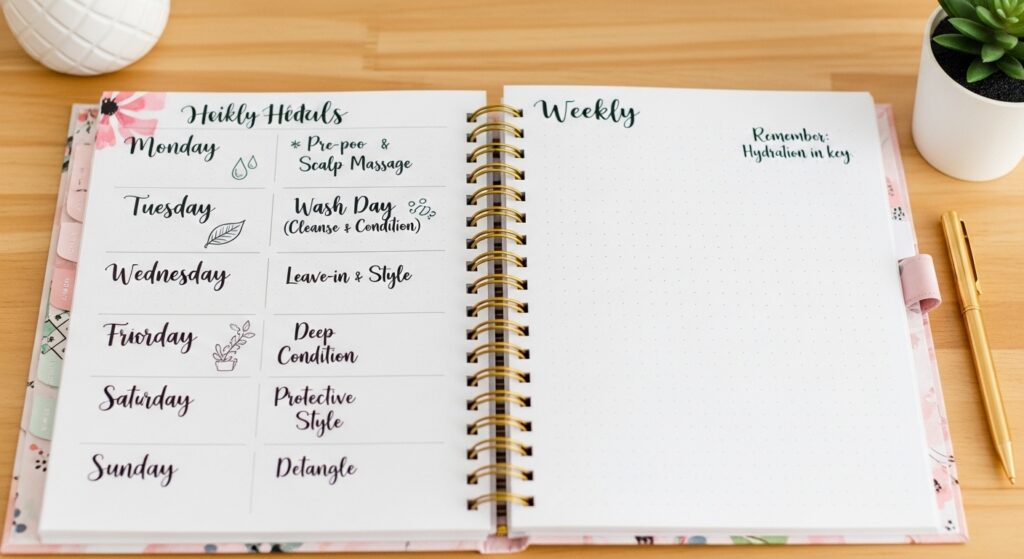 Heikly Héduls
Monday
* Pre-poo &
Scalp Massage
Tuesday
Wash Day
(Cleanse & Condition)
Wednesday
Leave-in & Style
Friorday
Deep
Condition
Saturday
Protective
Style
Sunday
Detangle
Weekly
Remember:
Hydration in key